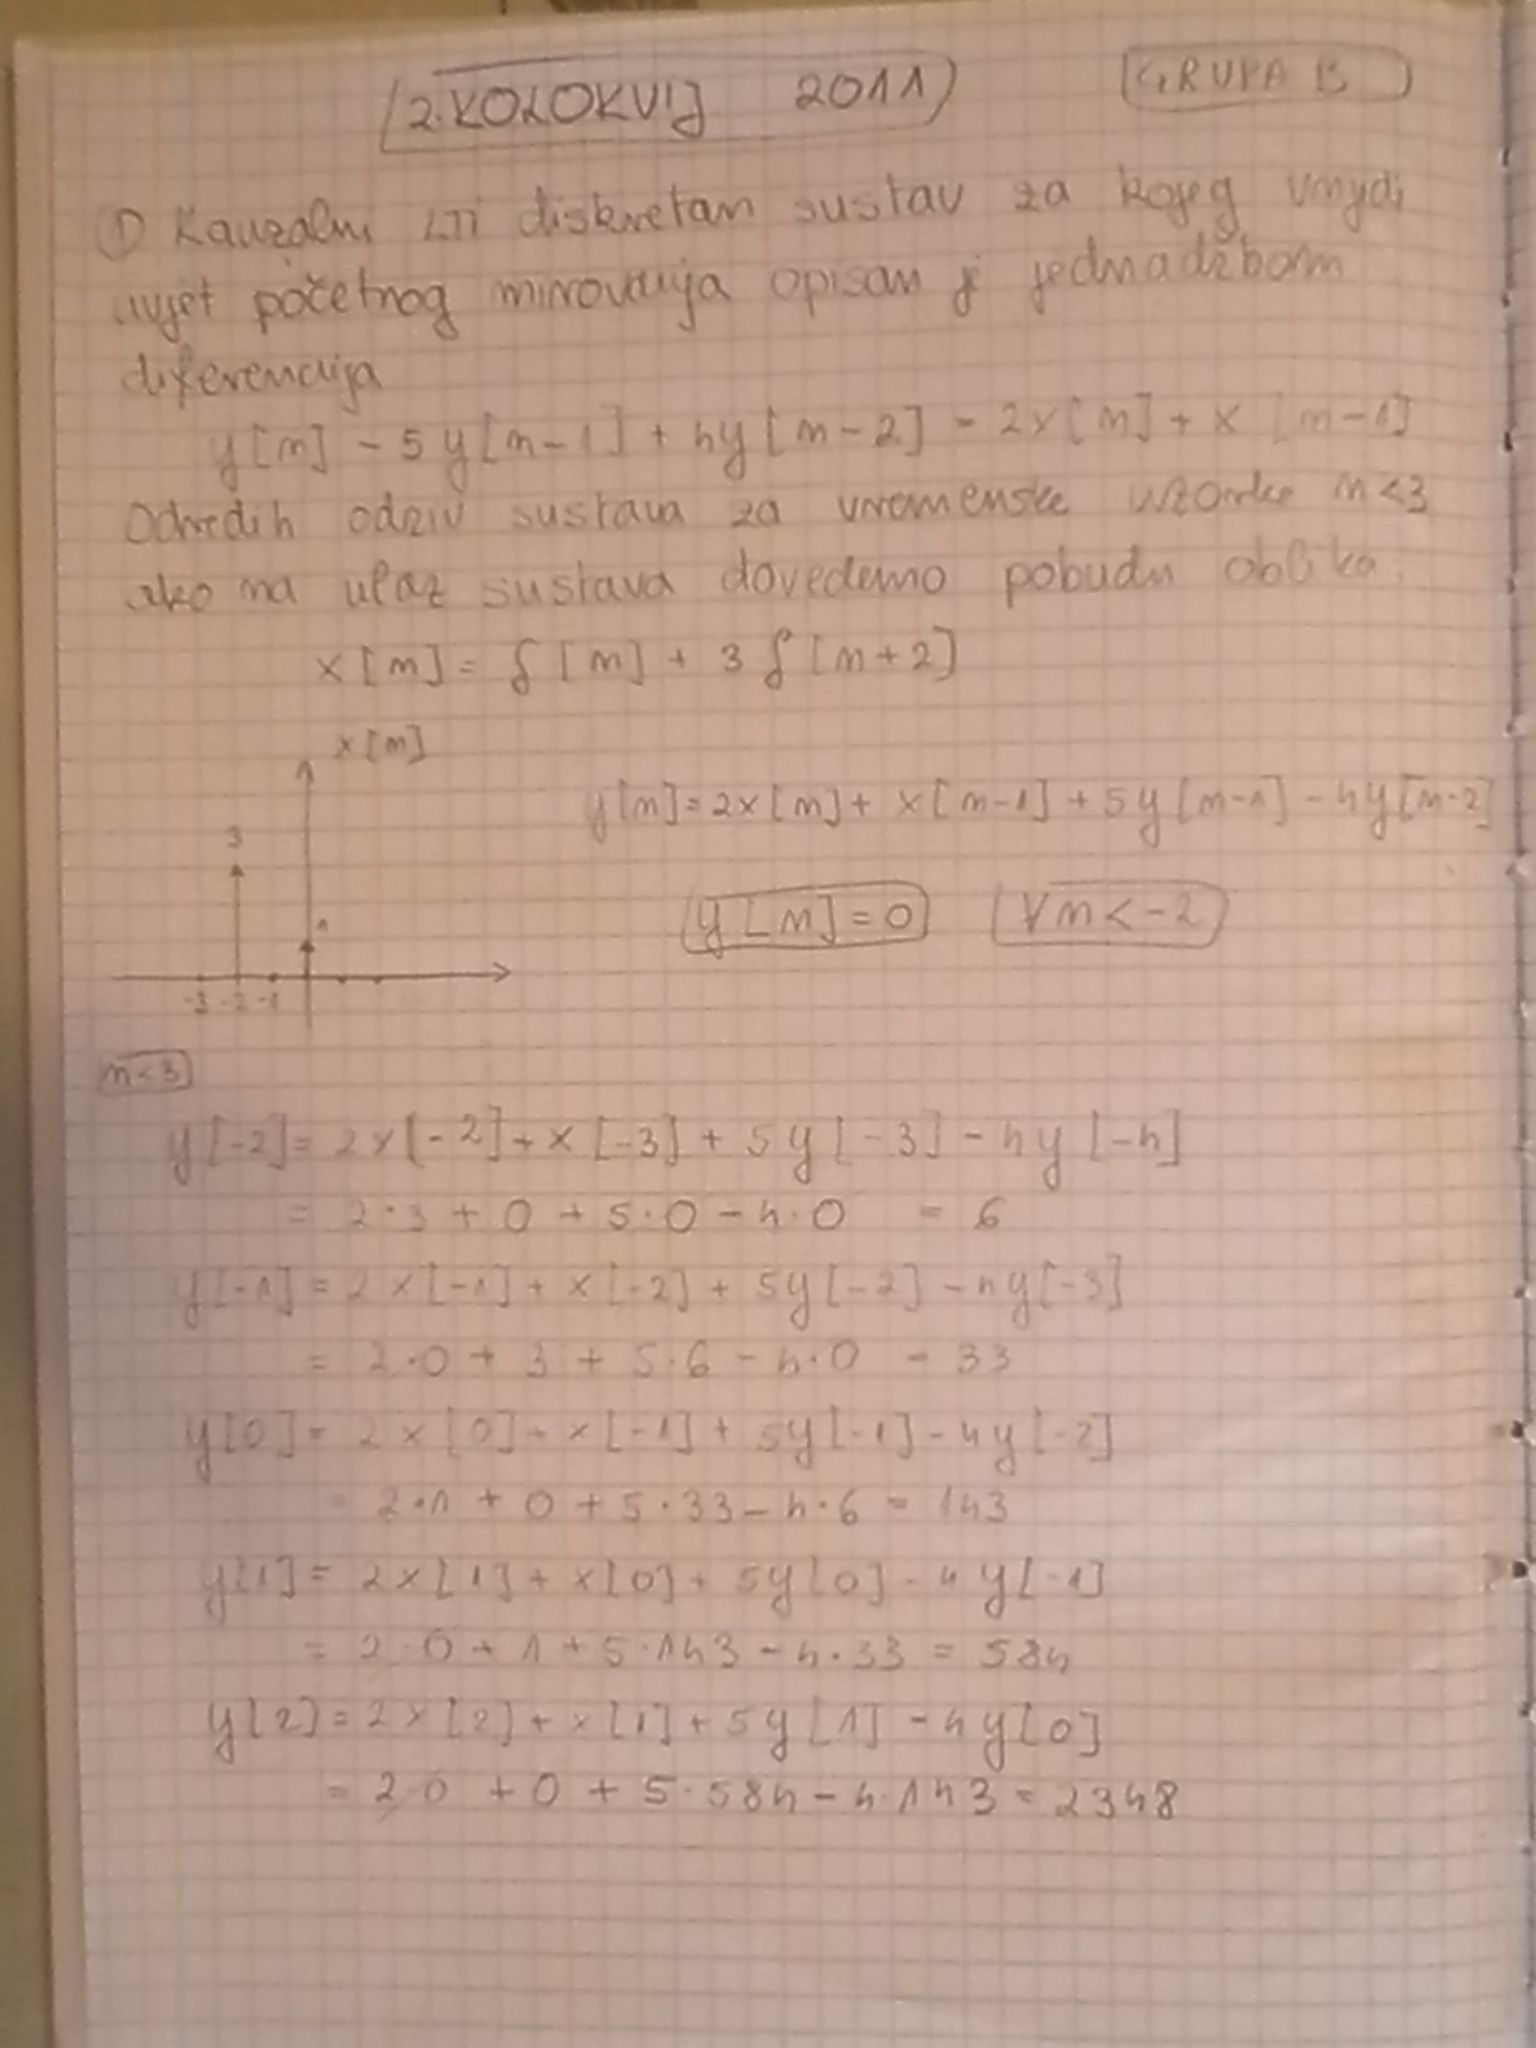 2. KOLOKVIJ 2011 GRUPA B
① Kauzalni LTI diskretan sustav za kojeg vrijedi
uvjet početnog mirovanja opisan je jednadžbom
diferencija
y[n] - 5y[n-1] + 4y[n-2] = 2x[n] + x[n-1]
Odrediti odziv sustava za vremenske uzorke n<3
ako na ulaz sustava dovedemo pobudu oblika
x[n] = δ[n] + 3δ[n+2]
x[n]
y[n] = 2x[n] + x[n-1] + 5y[n-1] - 4y[n-2]
3
1
y[n] = 0 ∀n<-2
-3 -2 -1
n<3
y[-2] = 2x[-2] + x[-3] + 5y[-3] - 4y[-4]
= 2·3 + 0 + 5·0 - 4·0 = 6
y[-1] = 2x[-1] + x[-2] + 5y[-2] - 4y[-3]
= 2·0 + 3 + 5·6 - 4·0 = 33
y[0] = 2x[0] + x[-1] + 5y[-1] - 4y[-2]
= 2·1 + 0 + 5·33 - 4·6 = 143
y[1] = 2x[1] + x[0] + 5y[0] - 4y[-1]
= 2·0 + 1 + 5·143 - 4·33 = 584
y[2] = 2x[2] + x[1] + 5y[1] - 4y[0]
= 2·0 + 0 + 5·584 - 4·143 = 2348